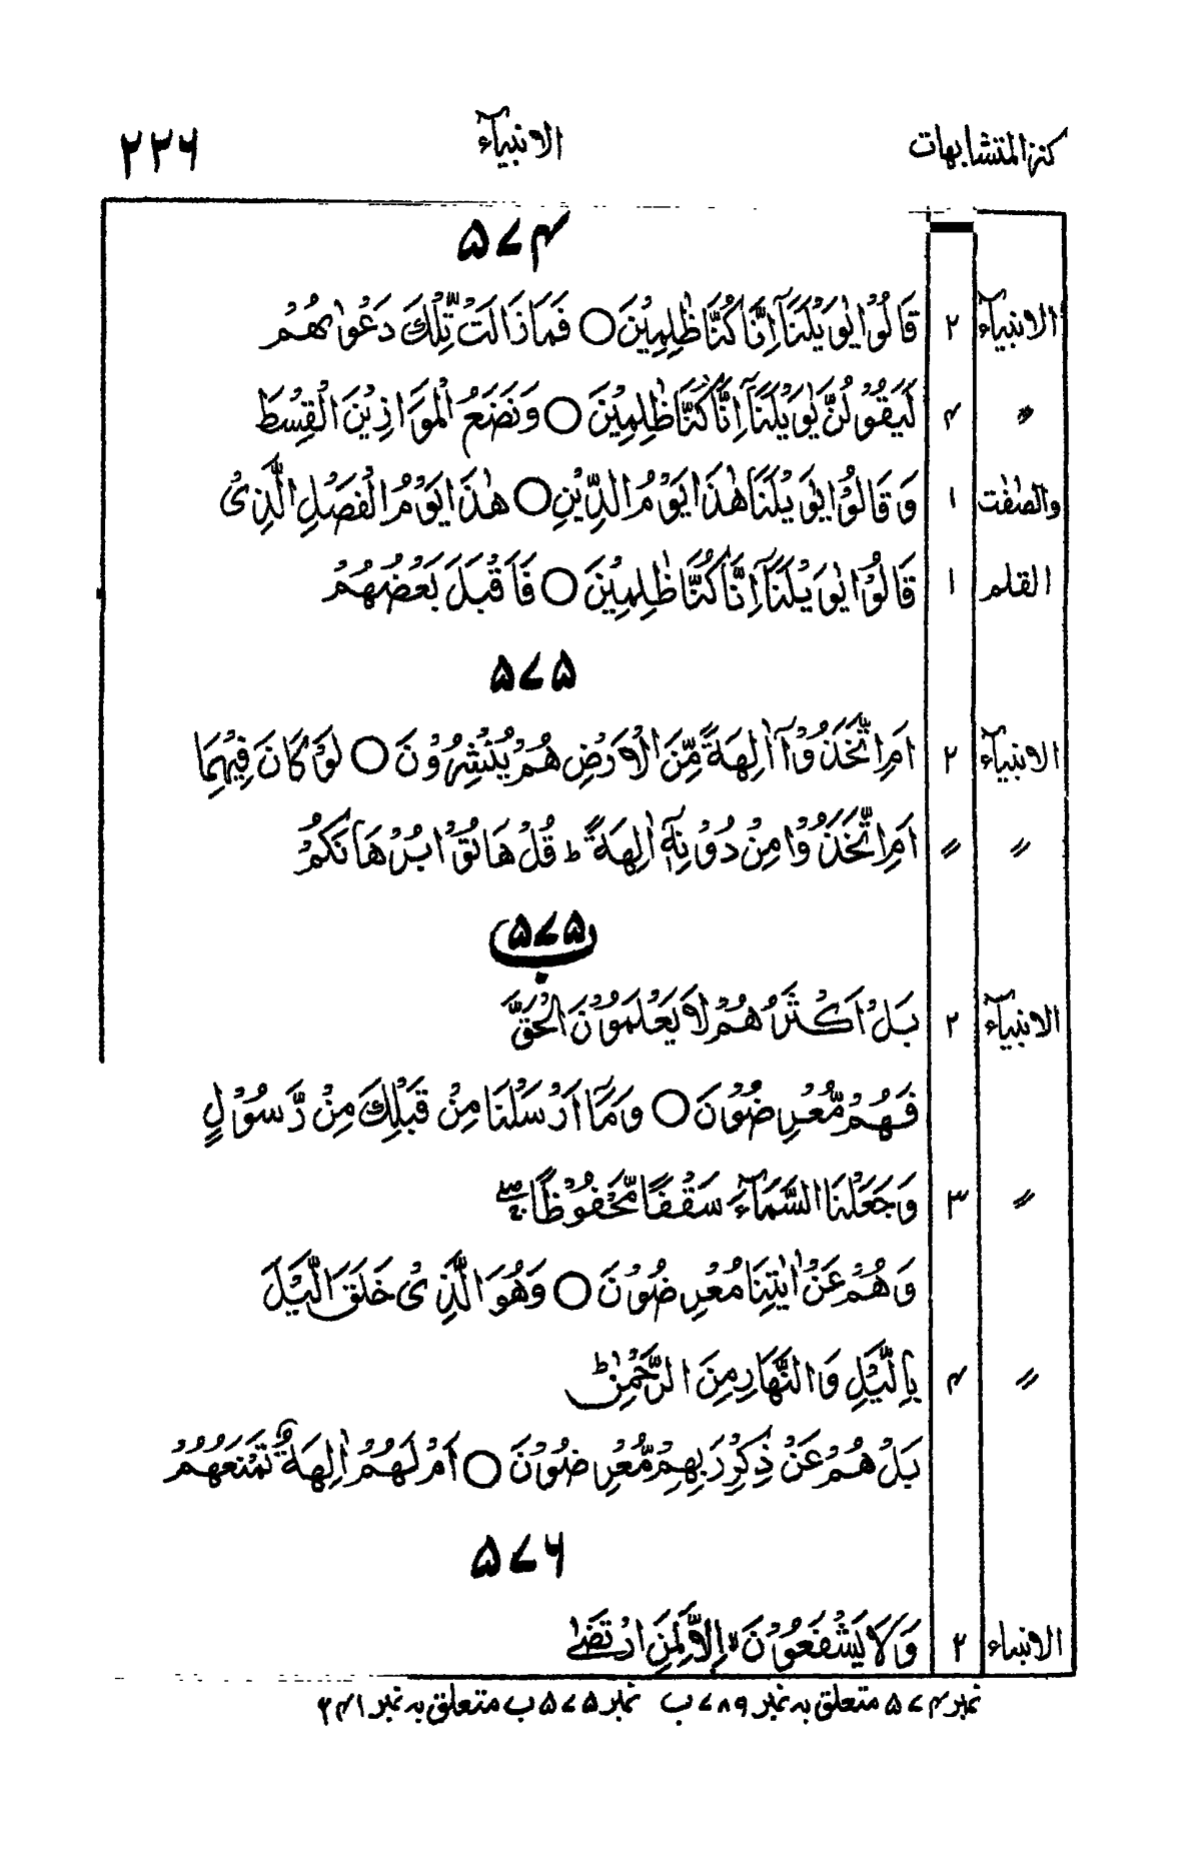 كنز المتشابهات الانبيآء ٢٢٦
۵۷۴
الانبيآء ٢ قَالُوْا يٰوَيْلَنَاۤ اِنَّا كُنَّا ظٰلِمِيْنَ ○ فَمَا زَالَتْ تِّلْكَ دَعْوٰىهُمْ
〃 ۴ لَيَقُوْلُنَّ يٰوَيْلَنَاۤ اِنَّا كُنَّا ظٰلِمِيْنَ ○ وَنَضَعُ الْمَوَازِيْنَ الْقِسْطَ
والصّٰفّٰت ١ وَقَالُوْا يٰوَيْلَنَا هٰذَا يَوْمُ الدِّيْنِ ○ هٰذَا يَوْمُ الْفَصْلِ الَّذِيْ
القلم ١ قَالُوْا يٰوَيْلَنَاۤ اِنَّا كُنَّا ظٰلِمِيْنَ ○ فَاَقْبَلَ بَعْضُهُمْ
۵۷۵
الانبيآء ٢ اَمِ اتَّخَذُوْۤا اٰلِهَةً مِّنَ الْاَرْضِ هُمْ يُنْشِرُوْنَ ○ لَوْ كَانَ فِيْهِمَا
〃 〃 اَمِ اتَّخَذُوْا مِنْ دُوْنِهٖۤ اٰلِهَةً ؕ قُلْ هَاتُوْا بُرْهَانَكُمْ
۵۷۵ ب
الانبيآء ٢ بَلْ اَكْثَرُهُمْ لَا يَعْلَمُوْنَ الْحَقَّ
فَهُمْ مُّعْرِضُوْنَ ○ وَمَاۤ اَرْسَلْنَا مِنْ قَبْلِكَ مِنْ رَّسُوْلٍ
〃 ٣ وَجَعَلْنَا السَّمَآءَ سَقْفًا مَّحْفُوْظًا ۖۚ
وَهُمْ عَنْ اٰيٰتِنَا مُعْرِضُوْنَ ○ وَهُوَ الَّذِيْ خَلَقَ الَّيْلَ
〃 ۴ بِالَّيْلِ وَالنَّهَارِ مِنَ الرَّحْمٰنِ ؕ
بَلْ هُمْ عَنْ ذِكْرِ رَبِّهِمْ مُّعْرِضُوْنَ ○ اَمْ لَهُمْ اٰلِهَةٌ تَمْنَعُهُمْ
۵۷۶
الانبياء ٢ وَلَا يَشْفَعُوْنَ ۙ اِلَّا لِمَنِ ارْتَضٰى
نمبر ۵۷۴ متعلق به نمبر ۷۸۹ ب نمبر ۵۷۵ ب متعلق به نمبر ۳۴۱